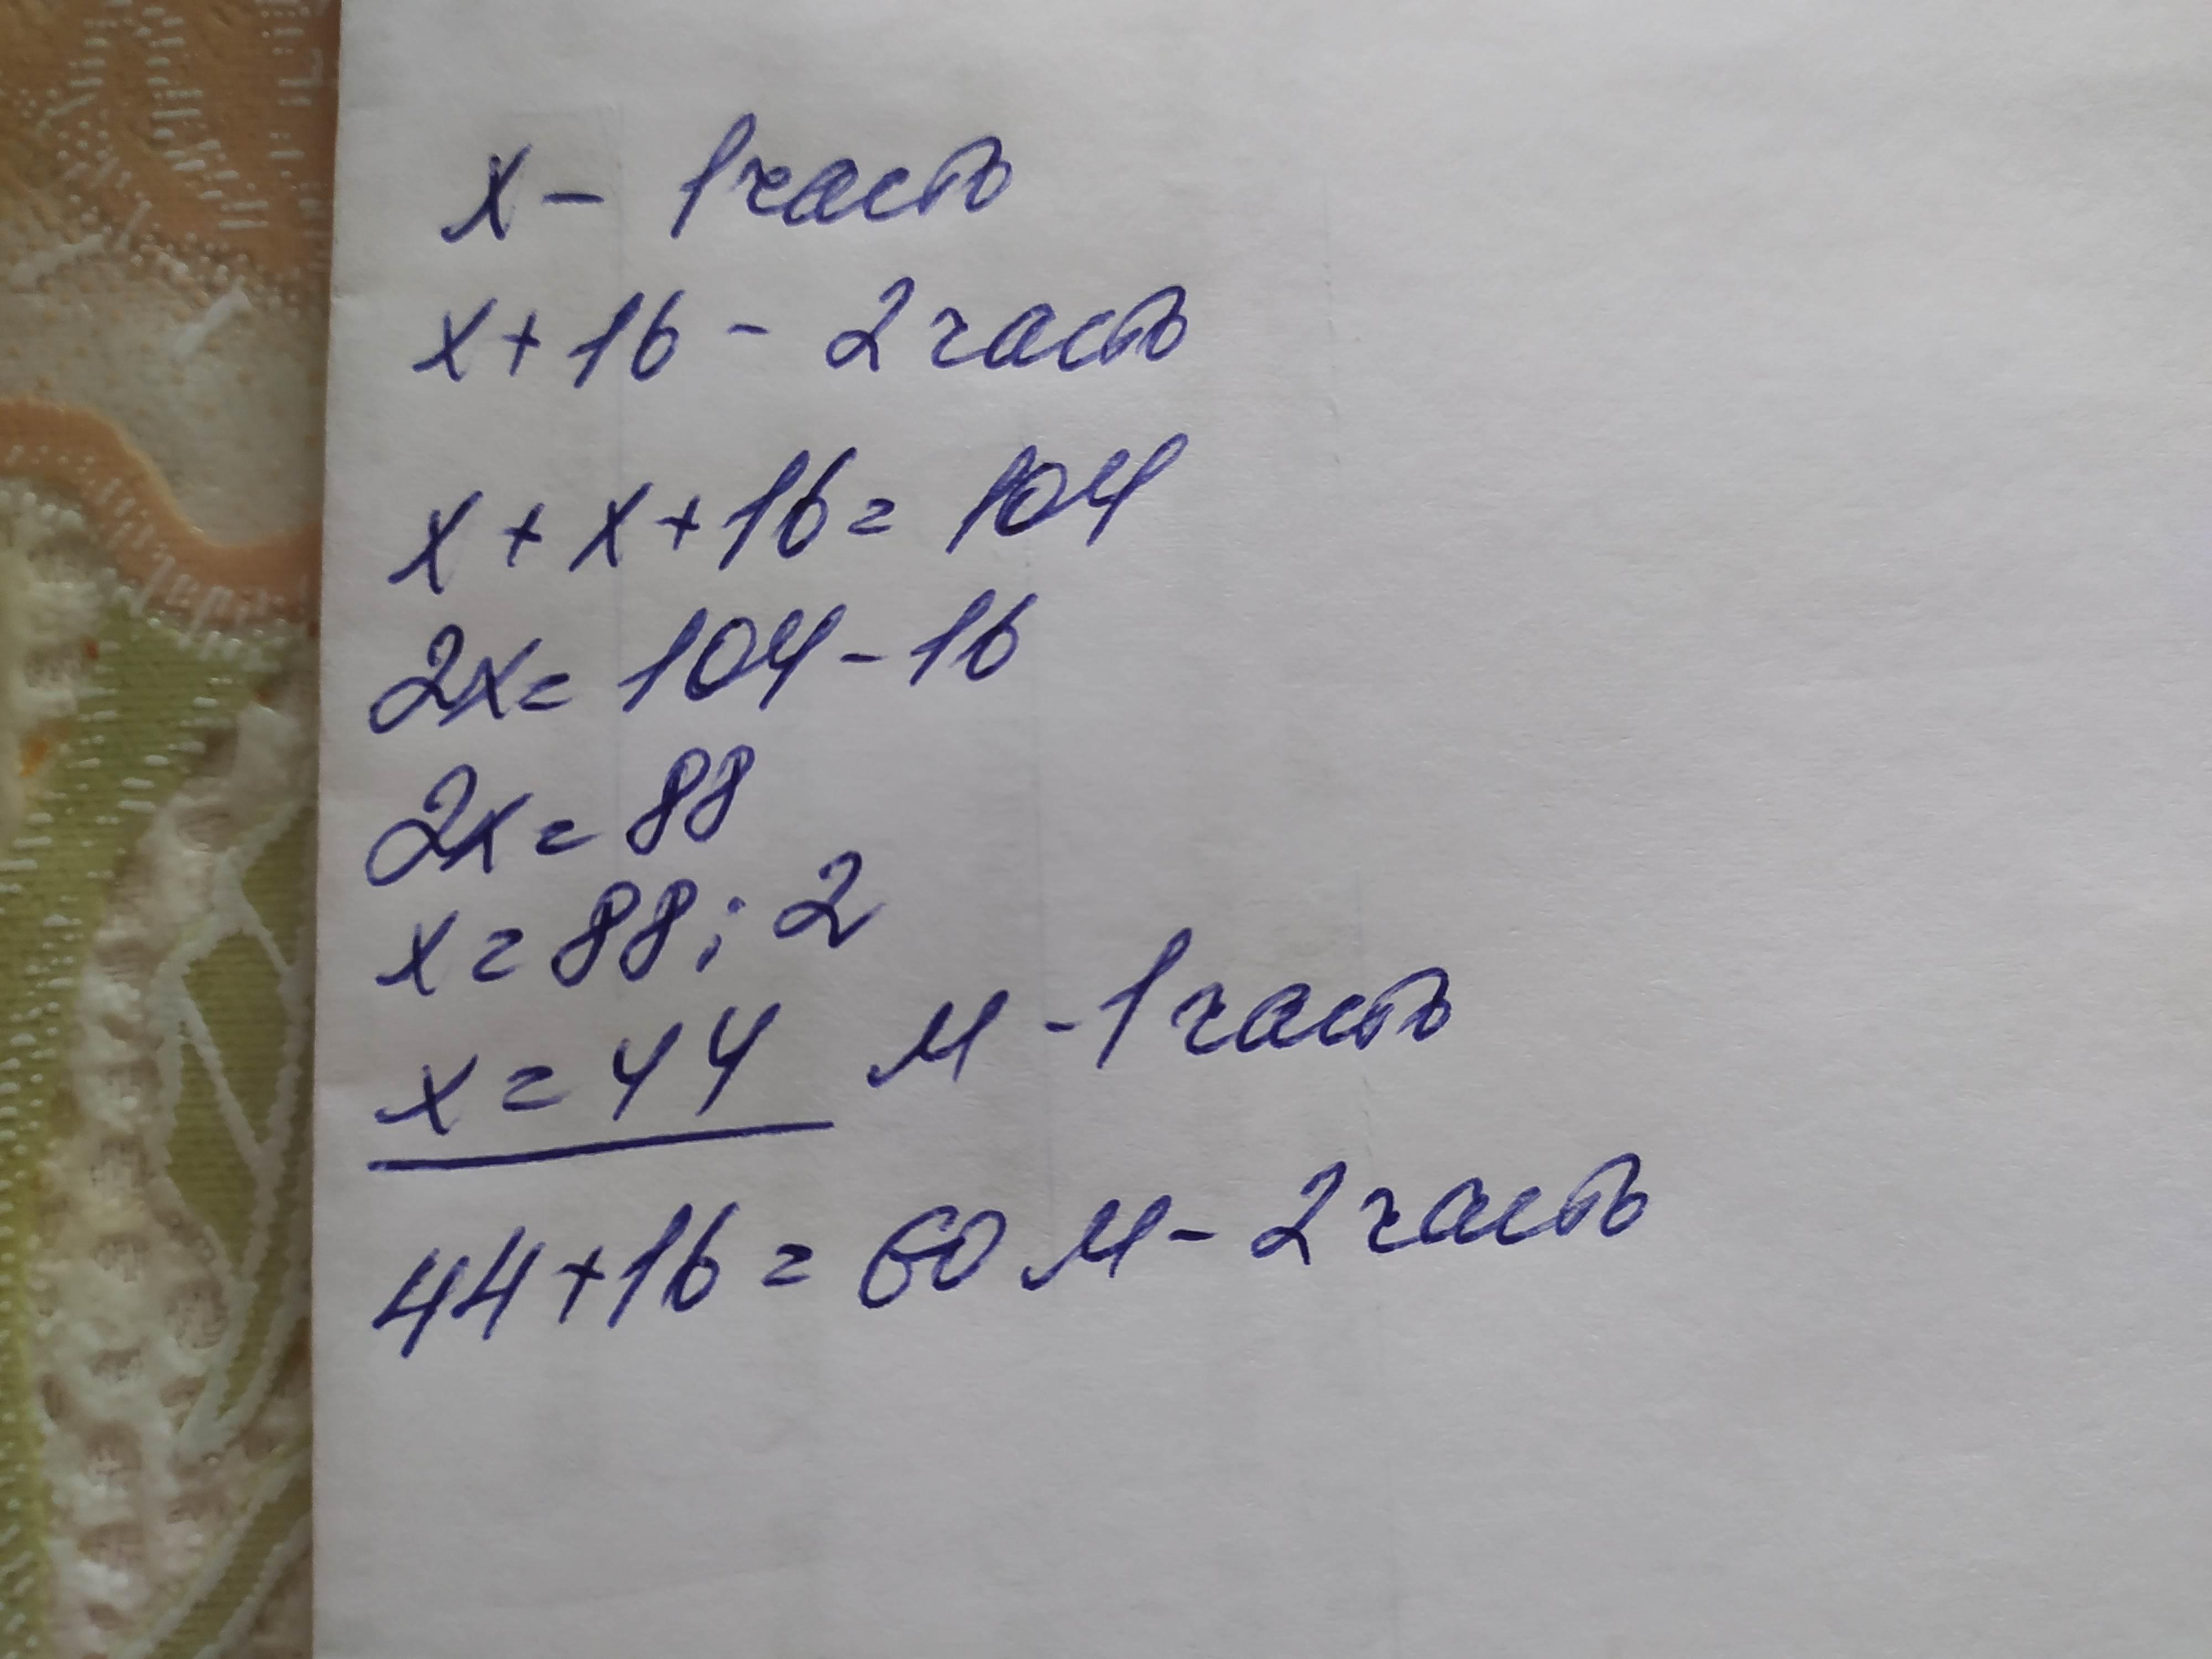 x - 1 часть
x + 16 - 2 часть
x + x + 16 = 104
2x = 104 - 16
2x = 88
x = 88 : 2
x = 44 м - 1 часть
44 + 16 = 60 м - 2 часть